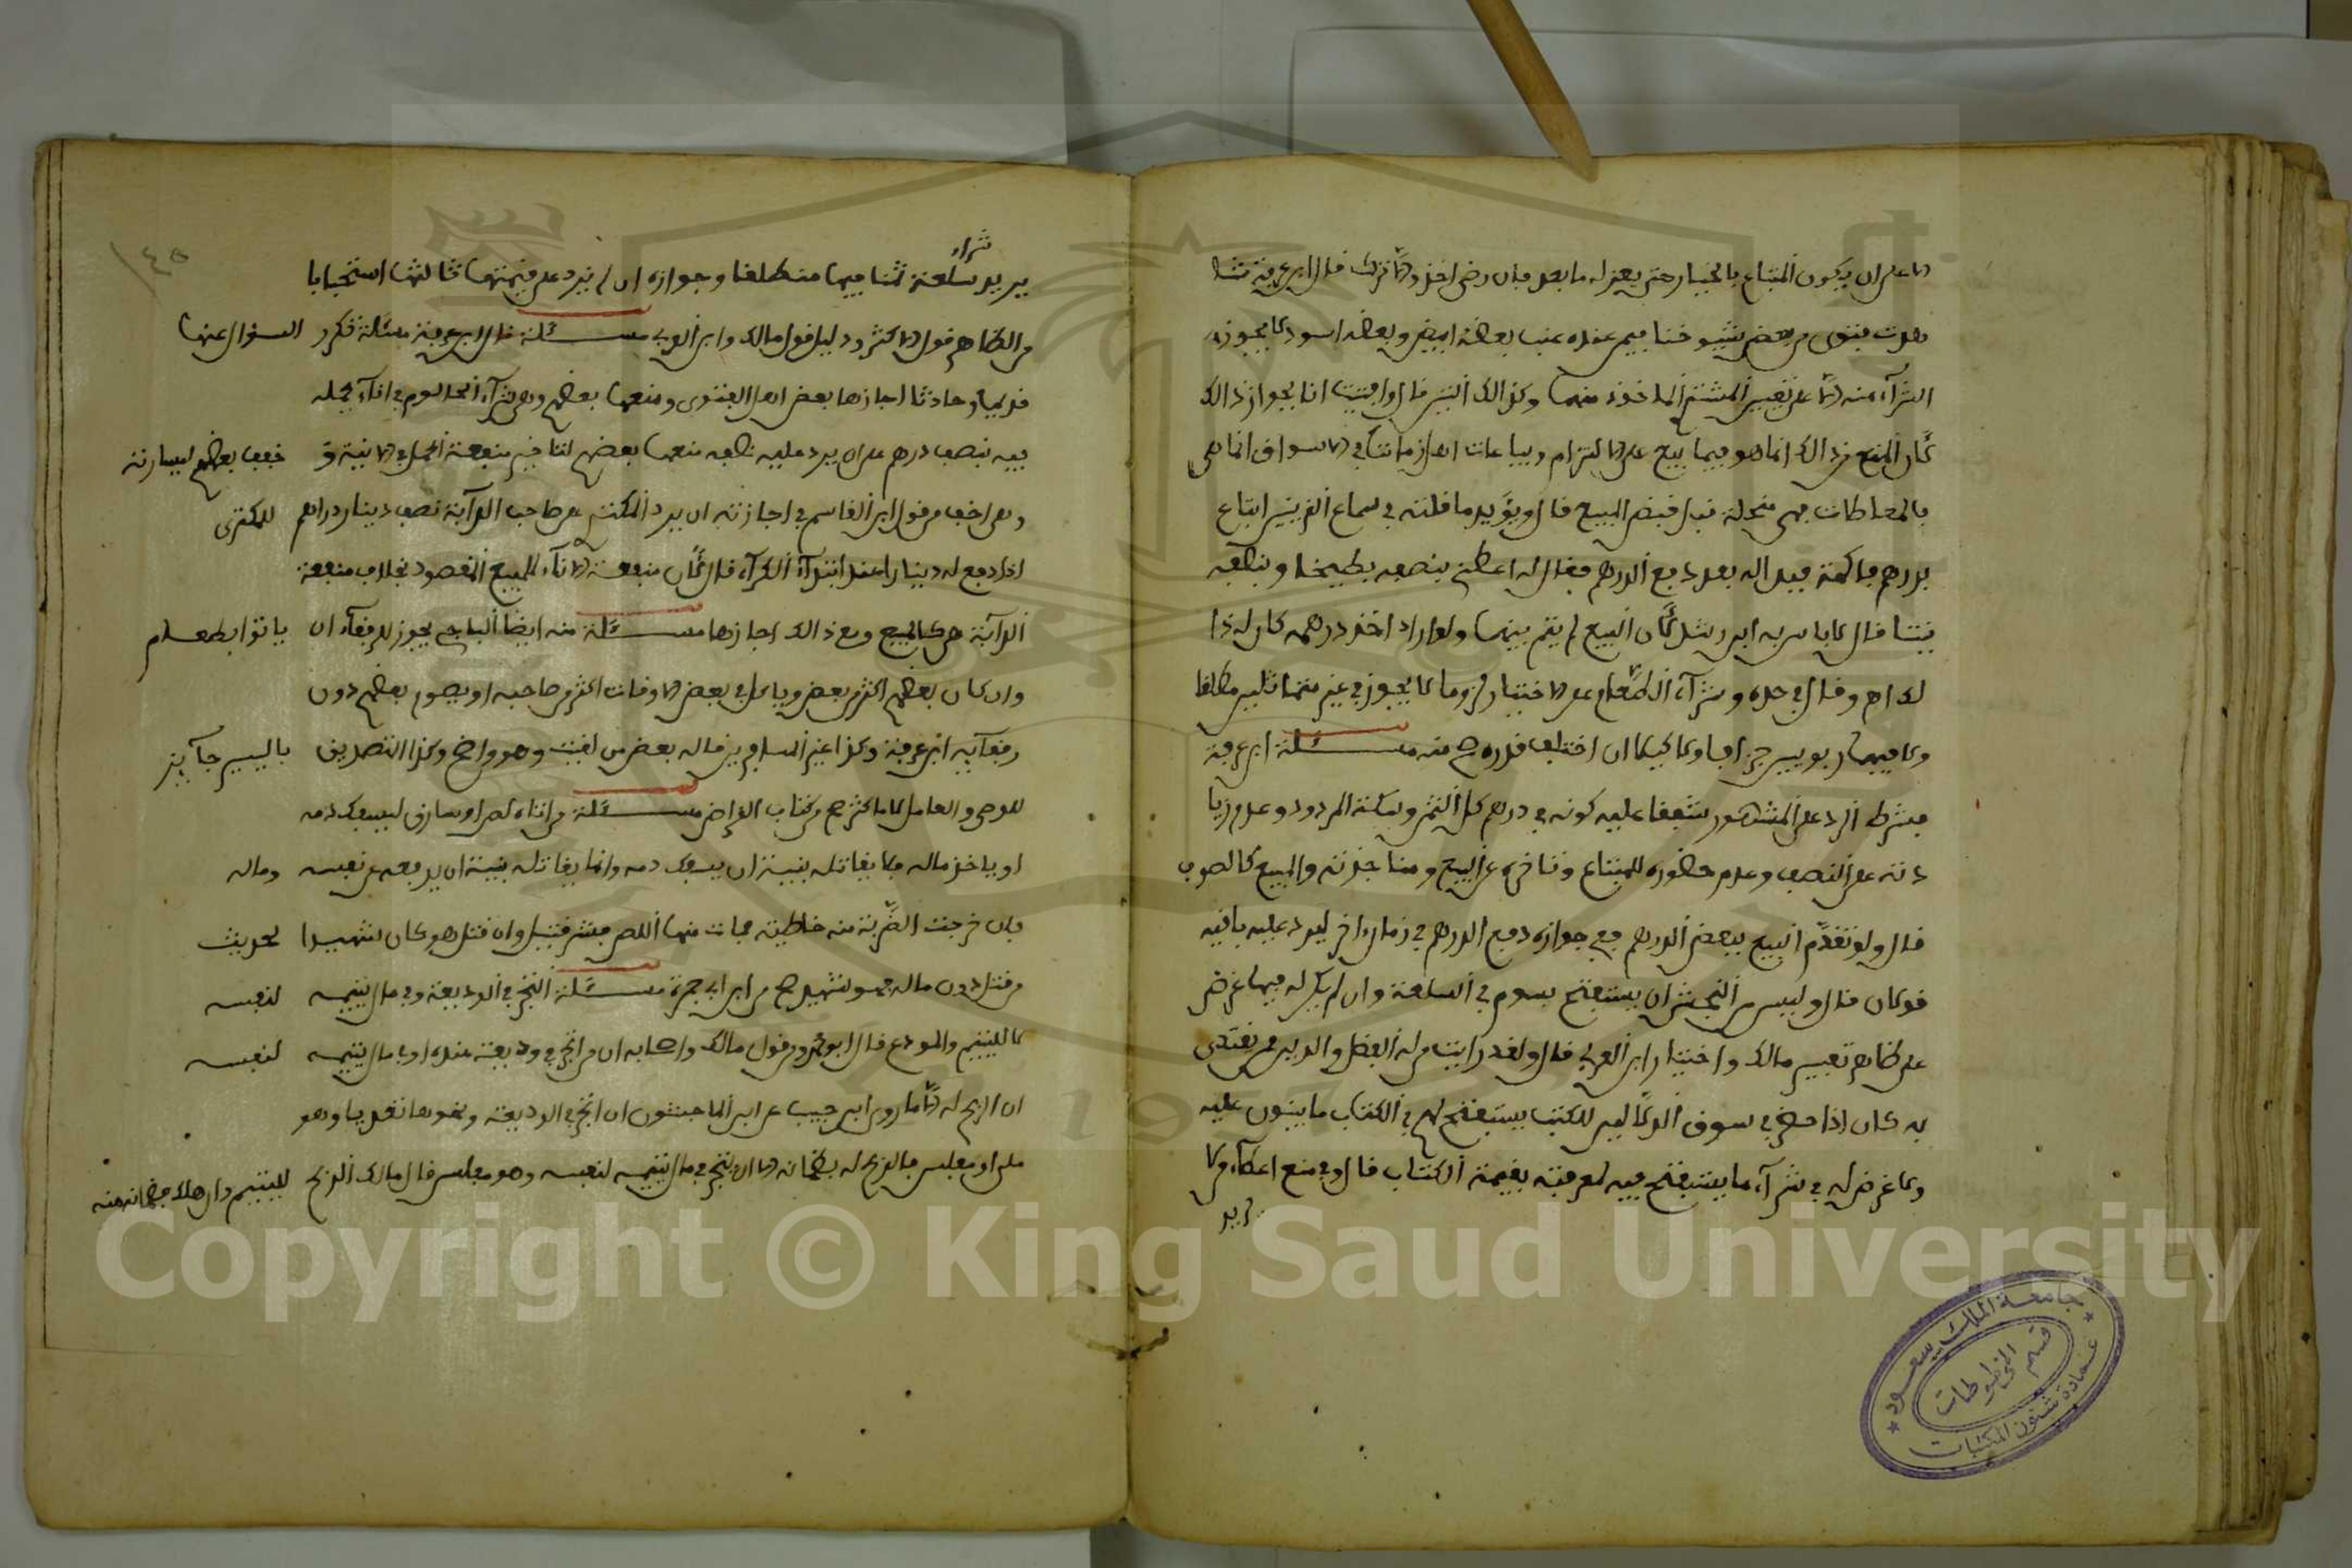 الا على ان يكون المبتاع بالخيار حتى يعزله ما بعد فان رضي اخذ والا ترك قال ابن عرفة نشا
بعدت فتوى من بعض شيوخنا فيمن عنده عنب بعضه ابيض وبعضه اسود لا يجوز له
الشراء منه الا على تعيين المشتري المأخوذ منهما وكذالك التين قال وافتيت انا بجواز ذالك
لان المنع من ذالك انما هو فيما بيع على الالتزام وبياعات اهل زماننا في الاسواق انما هي
بالمعاطات فهي منحلة قبل قبض المبيع قال ويؤيد ما قلته في سماع القرينين ابتاع
بدرهم فاكهة فبدا له بعد دفع الدرهم فقال له اعطني بنصفه بطيخا وبنصفه
تينا قال لا باس به ابن رشد لان البيع لم يتم بينهما ولو اراد اخذ درهمه كان له ذا
لك اه وقال في حده وشراء الطعام على الاختيار لزوما لا يجوز في غير متماثلين مطلقا
ولا فيهما ربويين جزافا ولا كيلا ان اختلف قدره صح منه مسئلة ابن عرفة
فشرط الرد على المشهور متفقا عليه كونه في درهم كل الثمن وسكة المردود وعدم زيا
دته على النصف وعدم حضوره للمبتاع وتاخره عن البيع ومناجزته والمبيع كالصرف
قال ولو تقدم البيع ببعض الدرهم ففي جوازه دفع الدرهم في زمان اخر ليرد عليه باقيه
قولان قال وليس من النجش ان يستفتح بسوم في السلعة وان لم يكن له فيها غرض
على ظاهر تفسير مالك واختيار ابن العربي قال ولقد رايت من له الفضل والدين ممن يقتدى
به كان اذا حضر في سوق الدلالين للكتب يستفتح لهم في الكتاب ما يبنون عليه
ولا غرض له في شراء ما يستفتح فيه لمعرفته بقيمة الكتاب قال وفي منع اعطاء من لا
يريد
شراء
يريد سلعة ثمنا فيها مطلقا وجوازه ان لم يزد على قيمتها ثالثها استحبابا
من الظاهر قول الاكثر ودليل قول مالك وابن العربي مسئلة قال ابن عرفة مسئلة تكرر السؤال عنها
قديما وحادثا اجازها بعض اهل الفتوى ومنعها بعضهم وهي شراء الحالوم في اناء يجعله
فيه بنصف درهم على ان يرد عليه نصفه منعها بعضهم لتاخير منفعة المحل في الانية و خفف بعضهم ليسارته
وهي اخف من قول ابن القاسم في اجازته ان يرد المكتري من صاحب الدابة نصف دينار دراهم للمكتري
اذا دفع له دينارا عند ابتداء الكراء قال لان منفعة الاناء المبيع المقصود بخلاف منفعة
الدابة هي كالمبيع ومع ذالك اجازها مسئلة منه ايضا الباجي يجوز للرفقاء ان ياتوا بطعام
وان كان بعضهم اكثر من بعض وياكل في بعض الاوقات اكثر من صاحبه او يصوم بعضهم دون
رفقائه ابن عرفة وكذا غير المسافرين قاله بعض من لقيت وهو واضح وكذا التصديق باليسير جائز
للوصي والعامل لا ما كثر صح من كتاب القراض مسئلة من اتاه لص او سارق ليسفك دمه
او ياخذ ماله فلا يقاتله بنية ان يسفك دمه وانما يقاتله بنية ان يدفعه عن نفسه وماله
فان خرجت الضربة منه خاطئة فمات منها اللص فشر قتيل وان قتل هو كان شهيدا لحديث
من قتل دون ماله فهو شهيد صح من ابن ابي جمرة مسئلة التجر في الوديعة وفي مال يتيمه لنفسه
لا لليتيم والمودع قال ابو عمر ومن قول مالك واصحابه ان من اتجر في وديعة عنده او بمال يتيمه لنفسه
ان الربح له الا ما روى ابن حبيب عن ابن الماجشون ان اتجر في الوديعة ونحوها تعديا وهو
ملي او مفلس فالربح له بضمانه الا ان يتجر في مال يتيمه لنفسه وهو مفلس قال مالك الربح لليتيم وان هلك فضمانه منه
١٤٥
جامعة الملك سعود
عمادة شئون المكتبات
قسم المخطوطات
Copyright © King Saud University